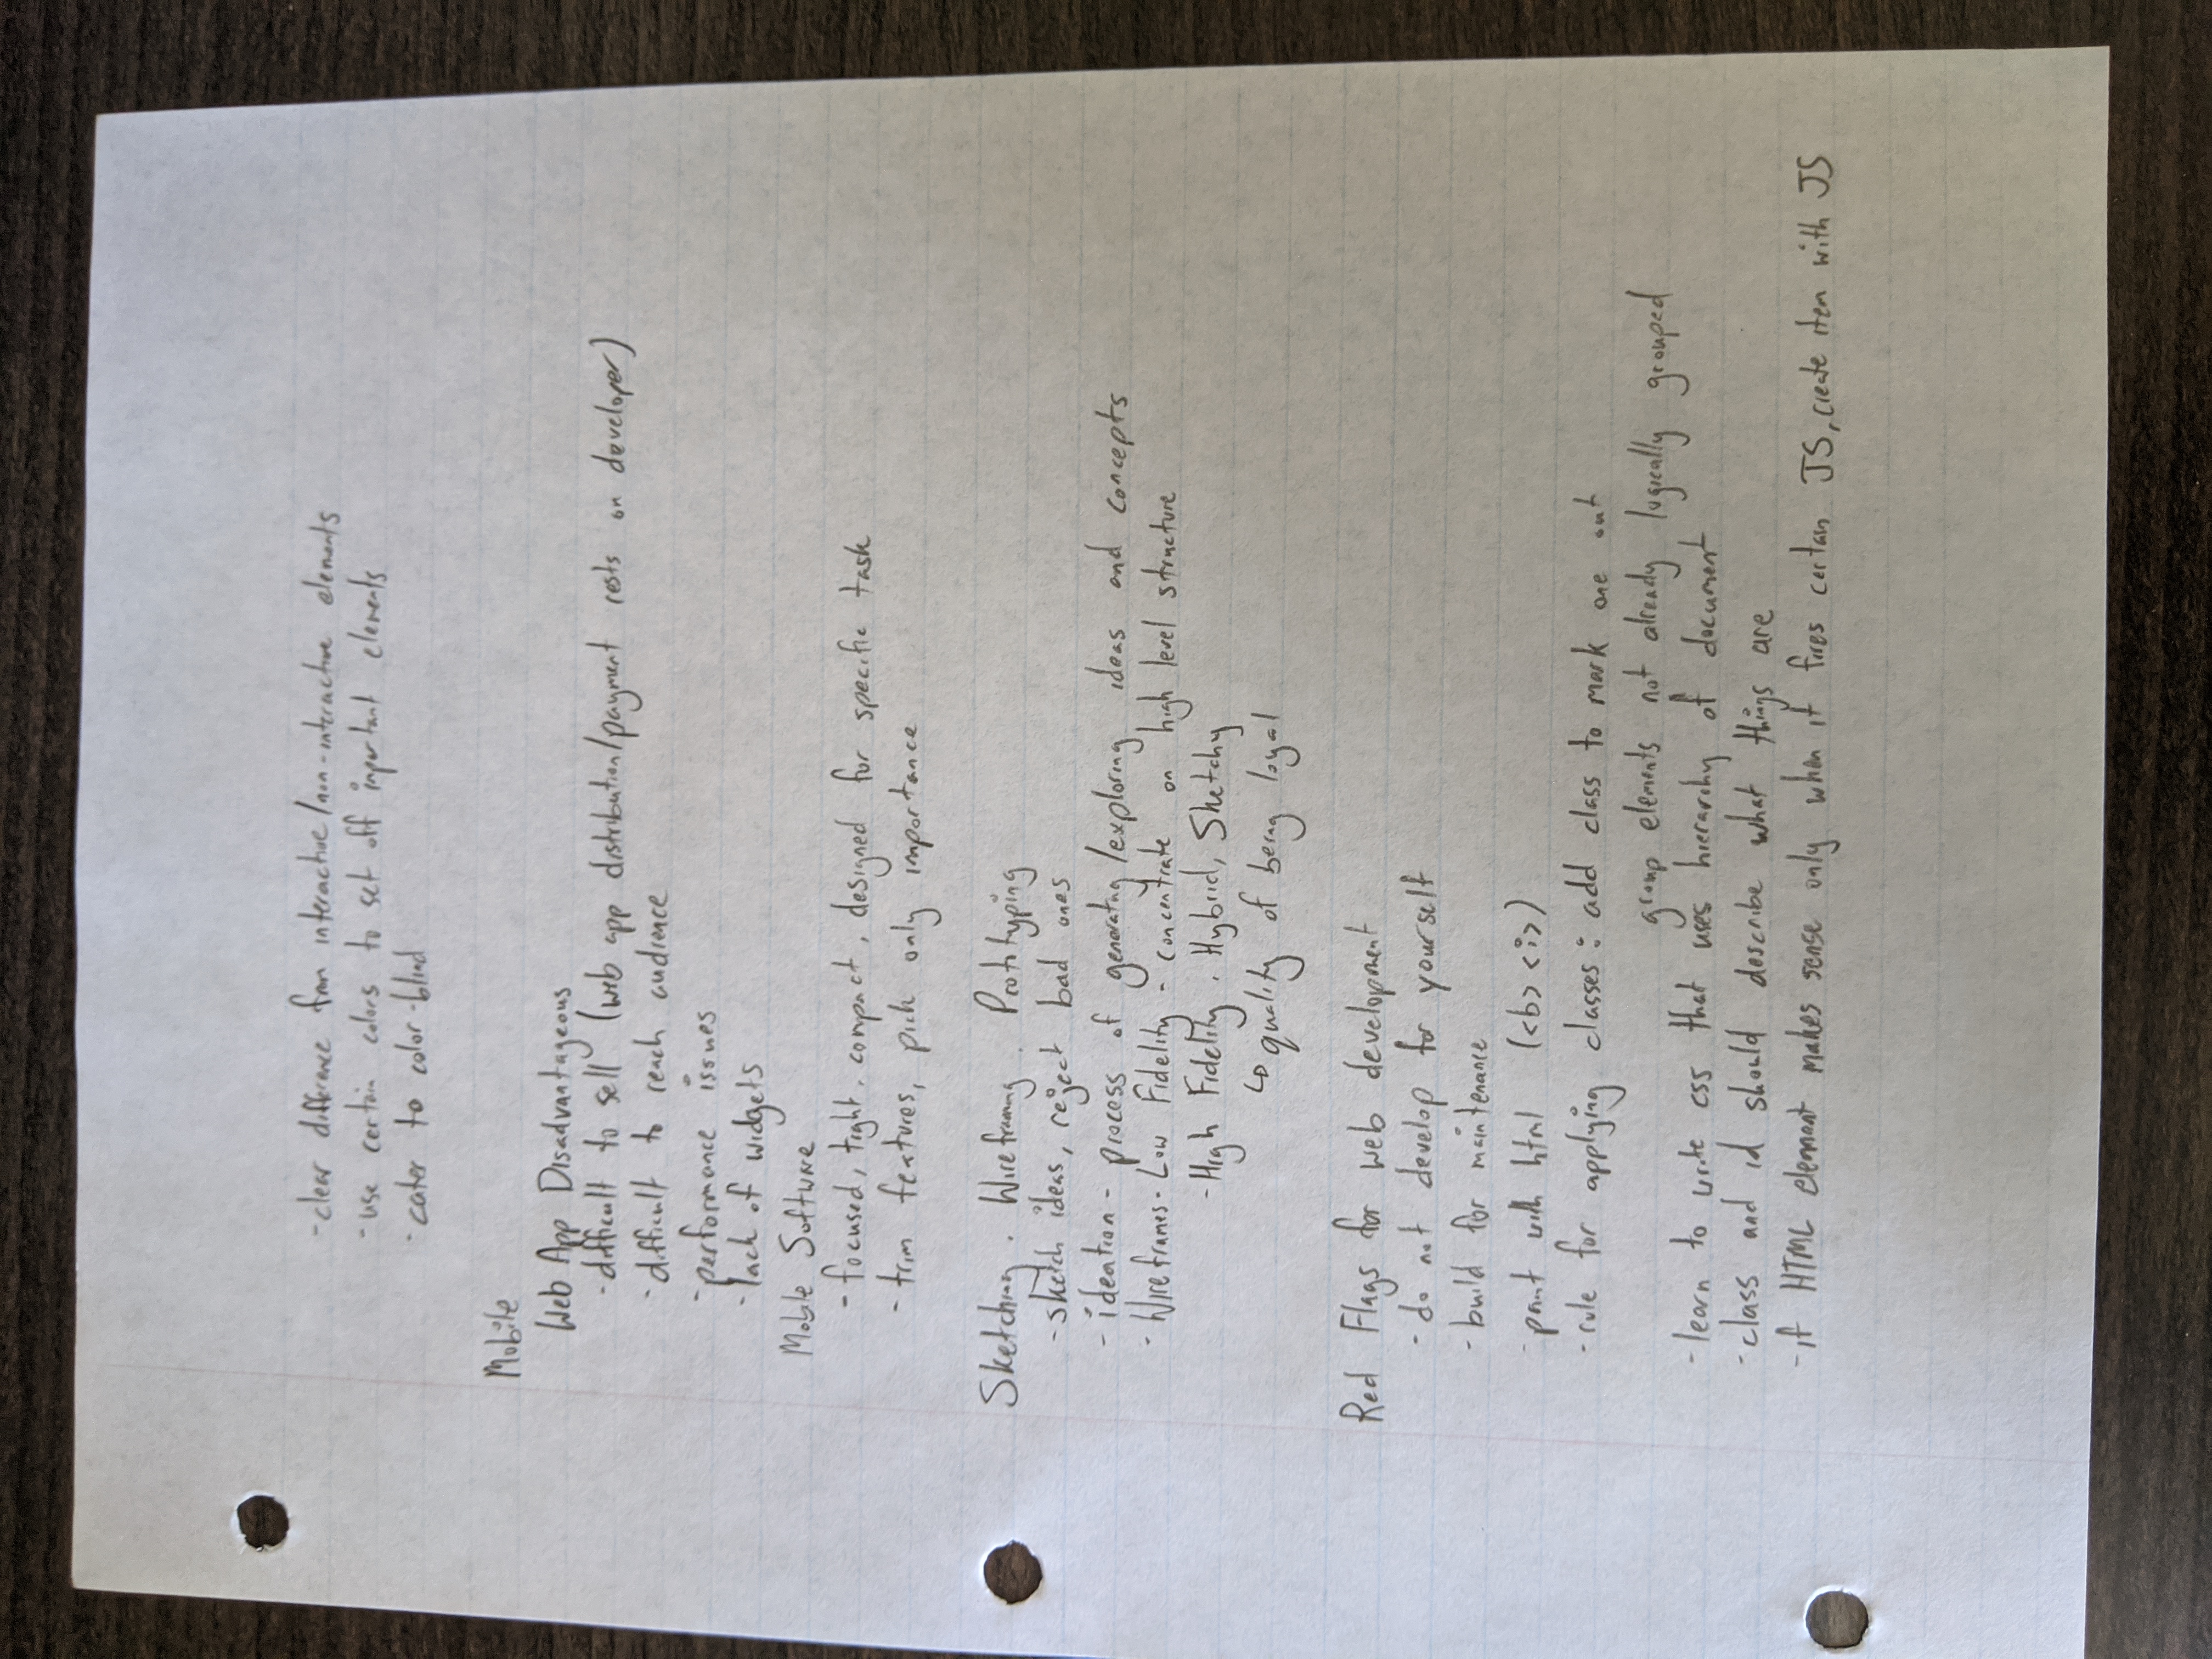 -clear difference from interactive/non-interactive elements
-use certain colors to set off important elements
-cater to color-blind
Mobile
Web App Disadvantageous
-difficult to sell (web app distribution/payment rests on developer)
-difficult to reach audience
-performance issues
-lack of widgets
Mobile Software
-focused, tight, compact, designed for specific task
-trim features, pick only importance
Sketching, Wireframing, Prototyping
-sketch ideas, reject bad ones
-ideation- process of generating/exploring ideas and concepts
-Wireframes-Low Fidelity - concentrate on high level structure
-High Fidelity, Hybrid, Sketchy
↳ quality of being loyal
Red Flags for web development
-do not develop for yourself
-build for maintenance
-paint with html (<b> <i>)
-rule for applying classes: add class to mark one out
group elements not already logically grouped
-learn to write css that uses hierarchy of document
-class and id should describe what things are
-if HTML element makes sense only when it fires certain JS, create item with JS